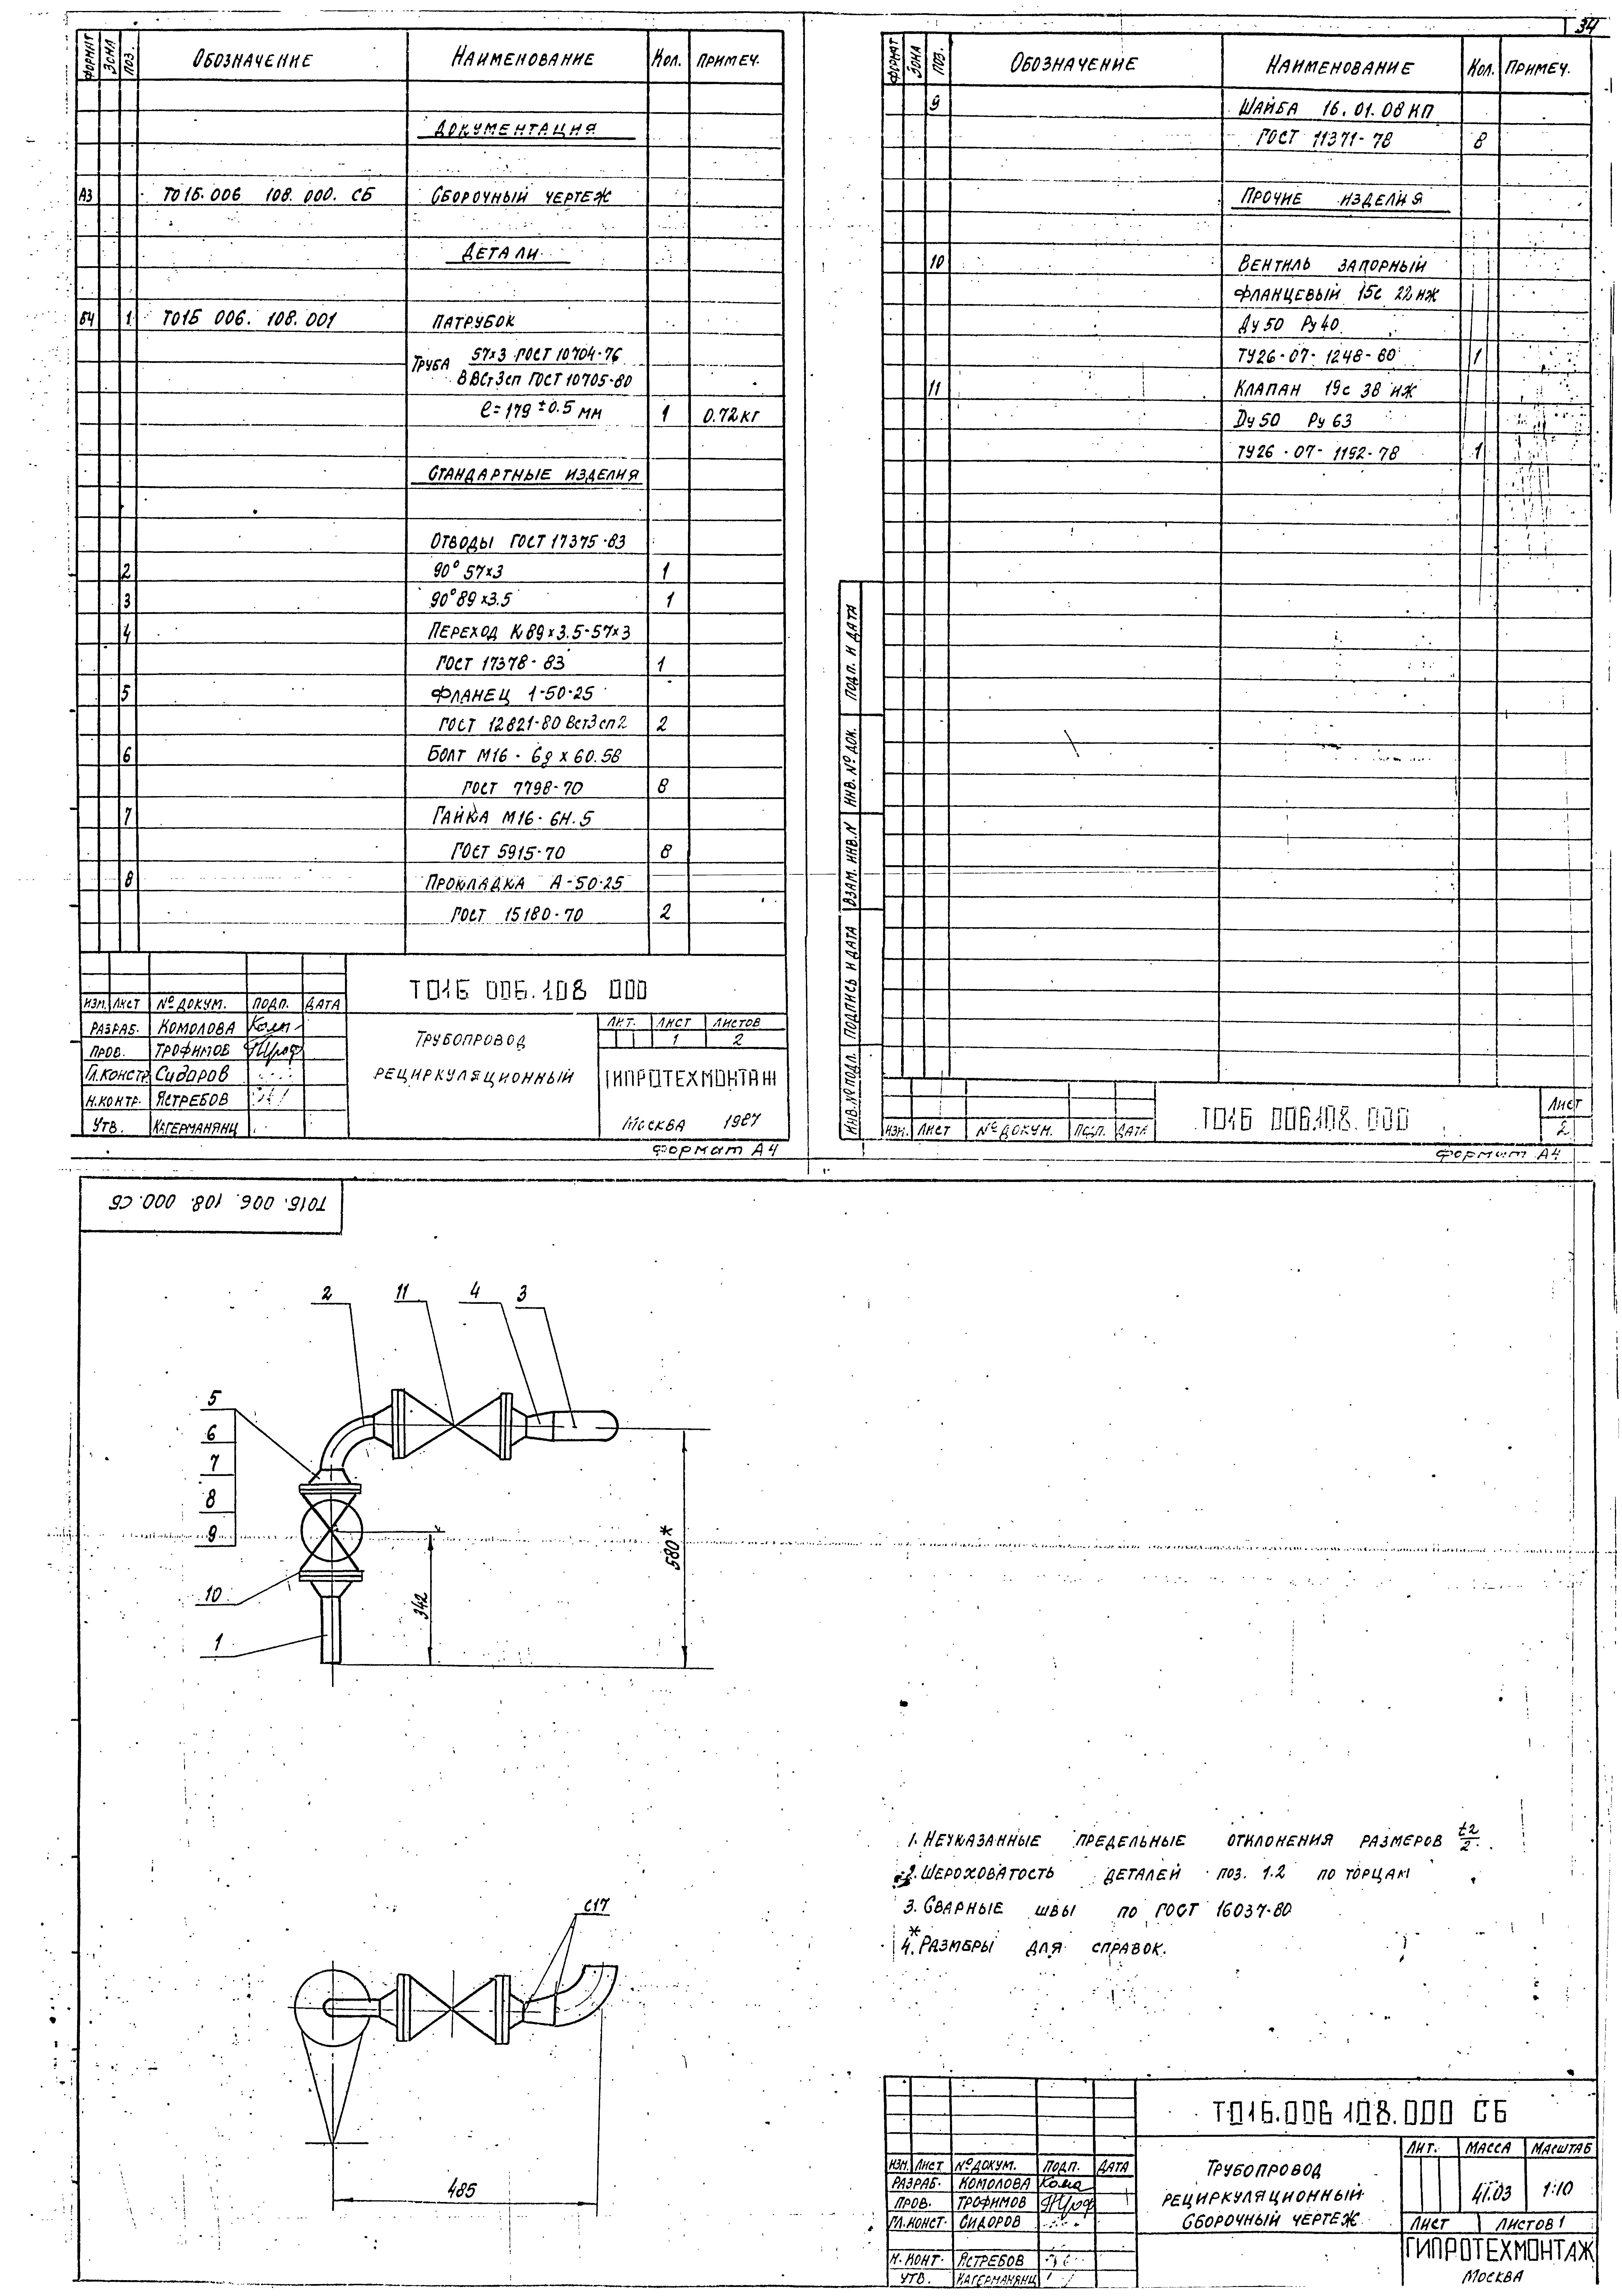 34
ФОРМАТ ЗОНА ПОЗ. ОБОЗНАЧЕНИЕ НАИМЕНОВАНИЕ КОЛ. ПРИМЕЧ.
ДОКУМЕНТАЦИЯ
А3 Т01Б.006 108.000.СБ СБОРОЧНЫЙ ЧЕРТЕЖ
ДЕТАЛИ
БЧ 1 Т01Б 006.108.001 ПАТРУБОК
ТРУБА 57х3 ГОСТ 10704-76
В ВСт3сп ГОСТ 10705-80
ℓ=179 ±0.5 мм 1 0.72кг
СТАНДАРТНЫЕ ИЗДЕЛИЯ
ОТВОДЫ ГОСТ 17375-83
2 90° 57х3 1
3 90° 89х3.5 1
4 ПЕРЕХОД К 89х3.5-57х3
ГОСТ 17378-83 1
5 ФЛАНЕЦ 1-50-25
ГОСТ 12821-80 ВСт3сп2 2
6 БОЛТ М16-6g х 60.58
ГОСТ 7798-70 8
7 ГАЙКА М16-6Н.5
ГОСТ 5915-70 8
8 ПРОКЛАДКА А-50-25
ГОСТ 15180-70 2
Т01Б 006.108 000
ИЗМ. ЛИСТ №ДОКУМ. ПОДП. ДАТА
РАЗРАБ. КОМОЛОВА
ПРОВ. ТРОФИМОВ
ГЛ.КОНСТР. СИДОРОВ
Н.КОНТР. ЯСТРЕБОВ
УТВ. КАГЕРМАНЯНЦ
ТРУБОПРОВОД
РЕЦИРКУЛЯЦИОННЫЙ
ЛИТ. ЛИСТ ЛИСТОВ
1 2
ГИПРОТЕХМОНТАЖ
МОСКВА 1987
Формат А4
ФОРМАТ ЗОНА ПОЗ. ОБОЗНАЧЕНИЕ НАИМЕНОВАНИЕ КОЛ. ПРИМЕЧ.
9 ШАЙБА 16.01.08 КП
ГОСТ 11371-78 8
ПРОЧИЕ ИЗДЕЛИЯ
10 ВЕНТИЛЬ ЗАПОРНЫЙ
ФЛАНЦЕВЫЙ 15с 22 НЖ
Ду 50 Ру 40
ТУ26-07-1248-80 1
11 КЛАПАН 19с 38 НЖ
Dу 50 Ру 63
ТУ26-07-1192-78 1
ПОДП. И ДАТА
ИНВ. № ДОК.
ВЗАМ. ИНВ.N
ПОДПИСЬ И ДАТА
ИНВ.№ ПОДЛ.
ИЗМ. ЛИСТ №ДОКУМ. ПОДП. ДАТА
Т01Б 006.108.000
ЛИСТ
2
Формат А4
Т01Б.006.108.000.СБ
2 11 4 3
5
6
7
8
9
10
1
342
580*
С17
485
1. НЕУКАЗАННЫЕ ПРЕДЕЛЬНЫЕ ОТКЛОНЕНИЯ РАЗМЕРОВ t2/2.
2. ШЕРОХОВАТОСТЬ ДЕТАЛЕЙ ПОЗ. 1.2 ПО ТОРЦАМ
3. СВАРНЫЕ ШВЫ ПО ГОСТ 16037-80
4.* РАЗМЕРЫ ДЛЯ СПРАВОК.
Т01Б.006 108.000 СБ
ИЗМ. ЛИСТ №ДОКУМ. ПОДП. ДАТА
РАЗРАБ. КОМОЛОВА
ПРОВ. ТРОФИМОВ
ГЛ.КОНСТ. СИДОРОВ
Н.КОНТ. ЯСТРЕБОВ
УТВ. КАГЕРМАНЯНЦ
ТРУБОПРОВОД
РЕЦИРКУЛЯЦИОННЫЙ
СБОРОЧНЫЙ ЧЕРТЕЖ
ЛИТ. МАССА МАСШТАБ
41.03 1:10
ЛИСТ ЛИСТОВ 1
ГИПРОТЕХМОНТАЖ
МОСКВА